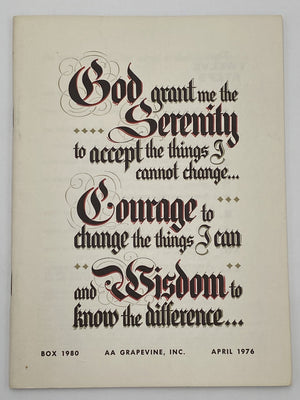 God grant me the
Serenity
to accept the things I
cannot change...
Courage to
change the things I can
and Wisdom to
know the difference...
BOX 1980 AA GRAPEVINE, INC. APRIL 1976